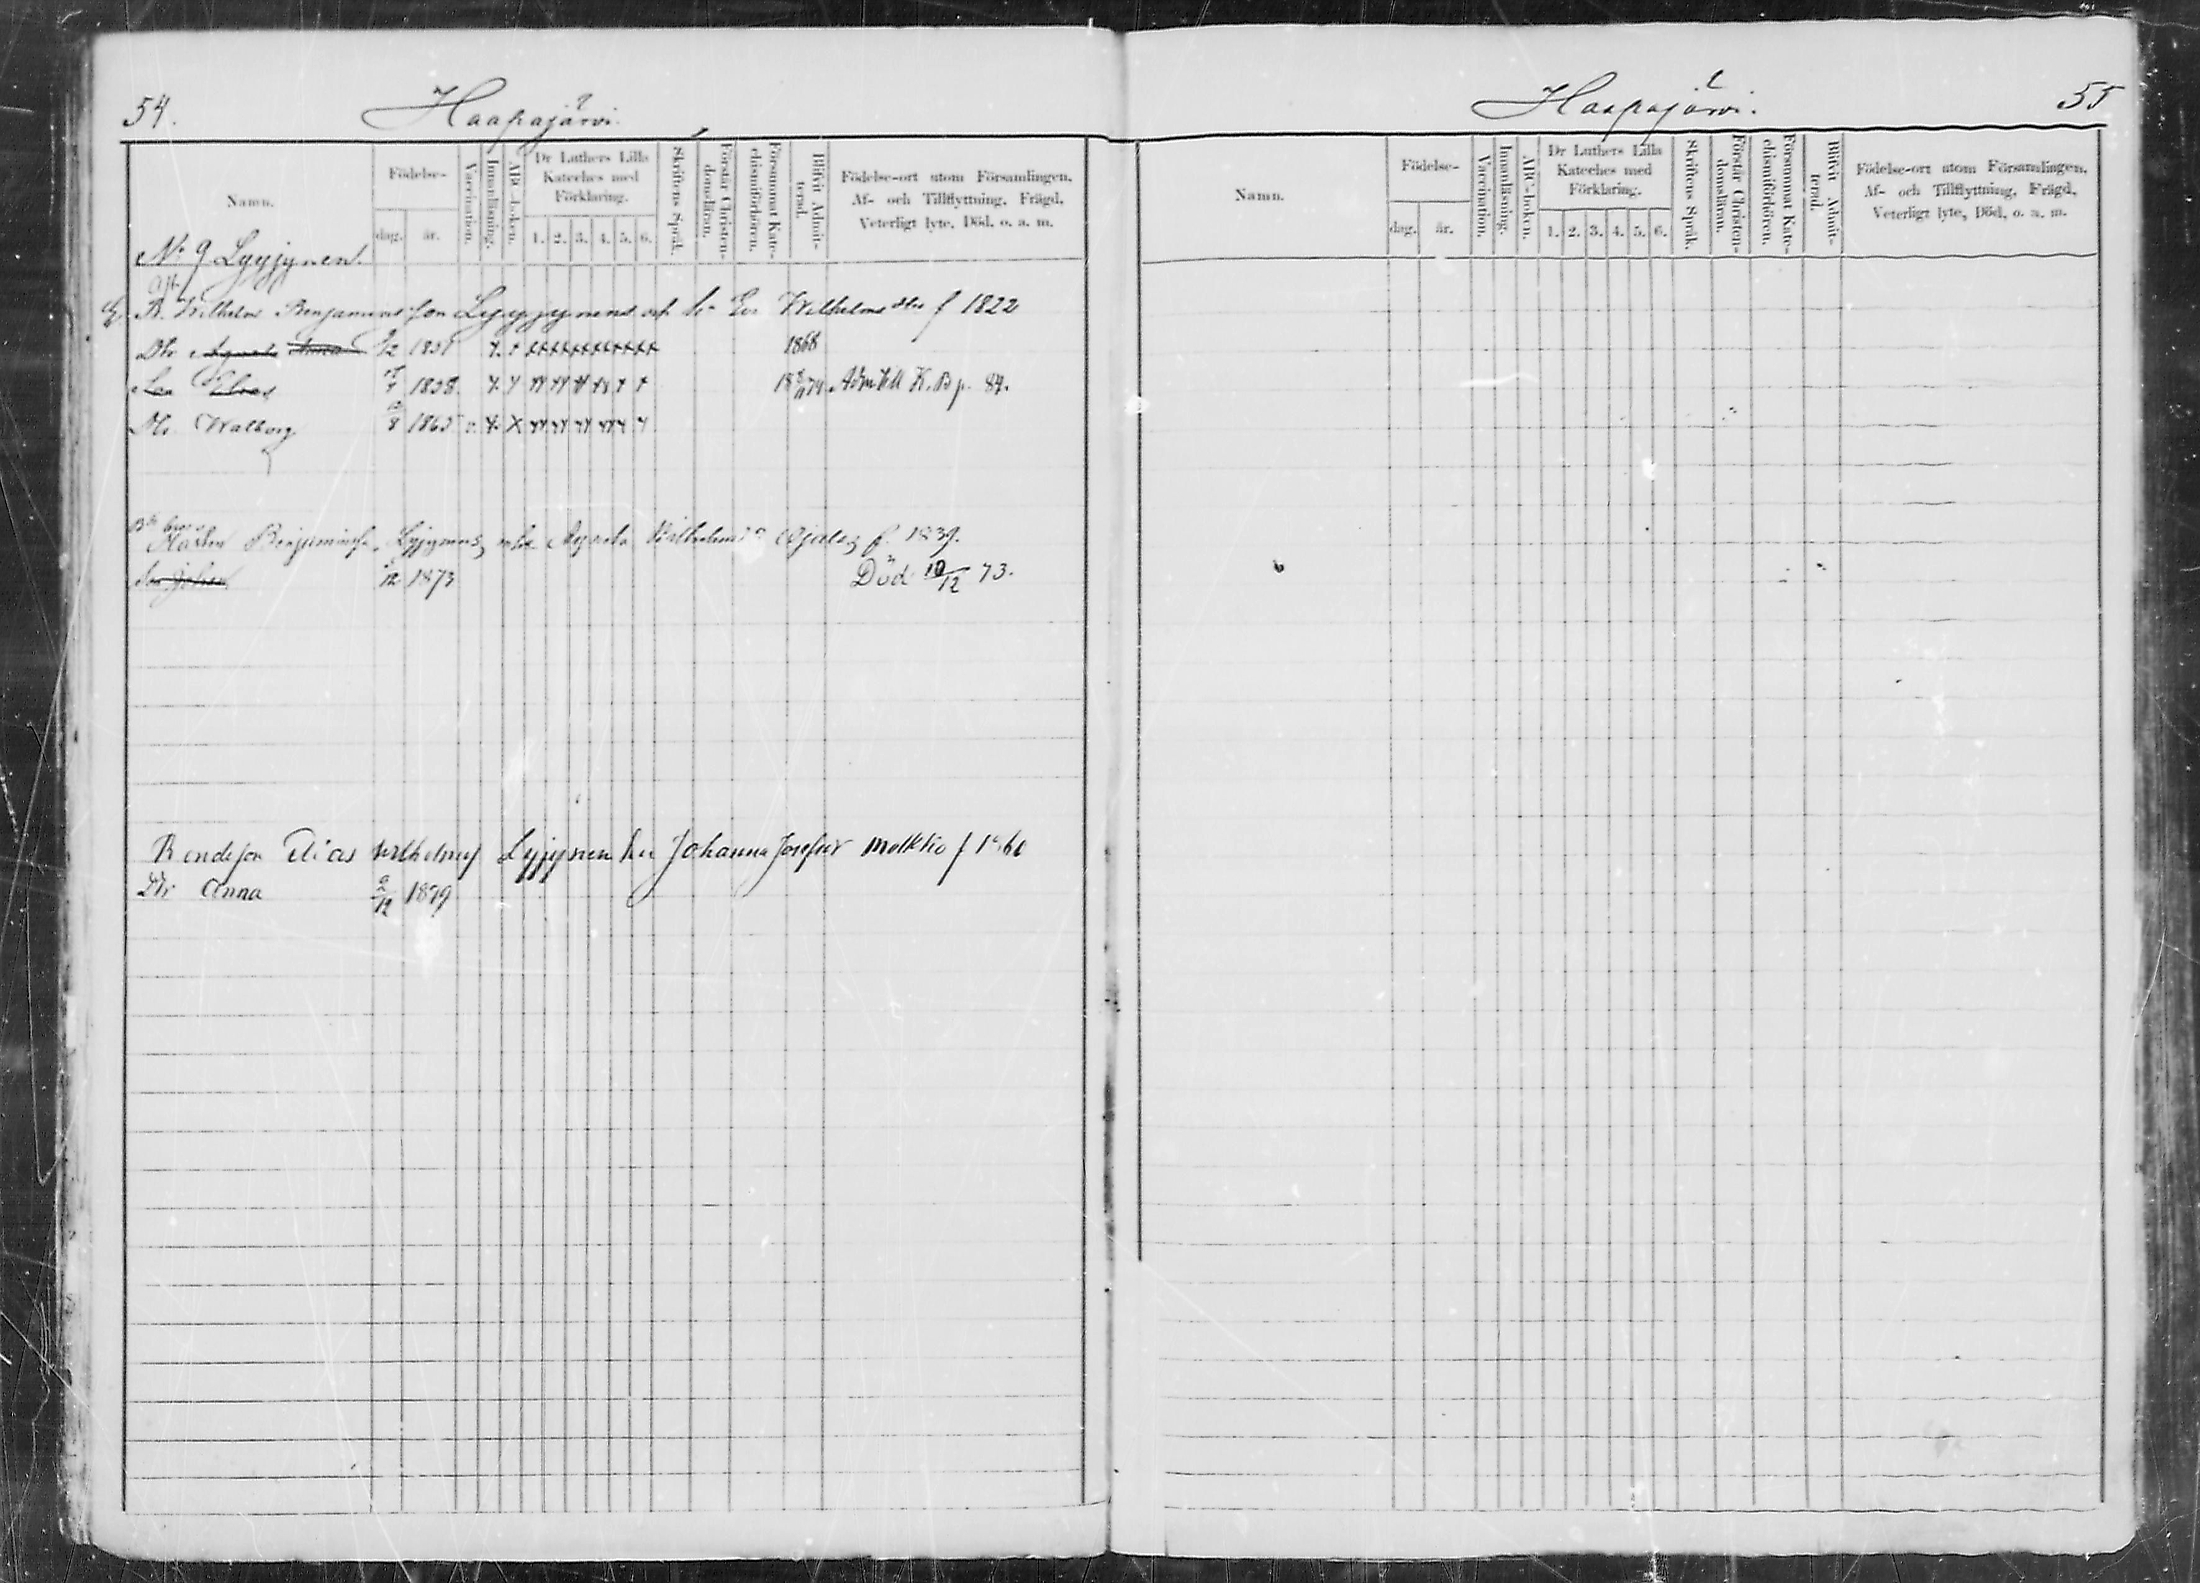 54.
Haapajärvi.
Namn.
Födelse-
dag.
år.
Vaccination.
Innanläsning.
ABC-boken.
Dr Luthers Lilla
Kateches med
Förklaring.
1. 2. 3. 4. 5. 6.
Skriftens Språk.
Förstår Christen-
domsläran.
Försummat Kate-
chismiförhören.
Blifvit Admit-
terad.
Födelse-ort utom Församlingen,
Af- och Tillflyttning, Frägd,
Veterligt lyte, Död, o. a. m.
No 9 Lyyjynen.
B. Wilhelm Benjaminsson Lyyjynens och h: Eva Wilhelms dtr f 1822
Dtr 12 1851 1868
Lea 1858. Adm till K. B p. 84.
Dtr Walborg 8 1865
Benjaminss. Lyjynens f. 1839.
Johan 12 1873 Död 10/12 73.
Bondeson Elias Wilhelmss Lyjynen hu Johanna Josefsdr f 1860
Dtr Anna 9/12 1879
Haapajärvi.
55
Namn.
Födelse-
dag.
år.
Vaccination.
Innanläsning.
ABC-boken.
Dr Luthers Lilla
Kateches med
Förklaring.
1. 2. 3. 4. 5. 6.
Skriftens Språk.
Förstår Christen-
domsläran.
Försummat Kate-
chismiförhören.
Blifvit Admit-
terad.
Födelse-ort utom Församlingen,
Af- och Tillflyttning, Frägd,
Veterligt lyte, Död, o. a. m.